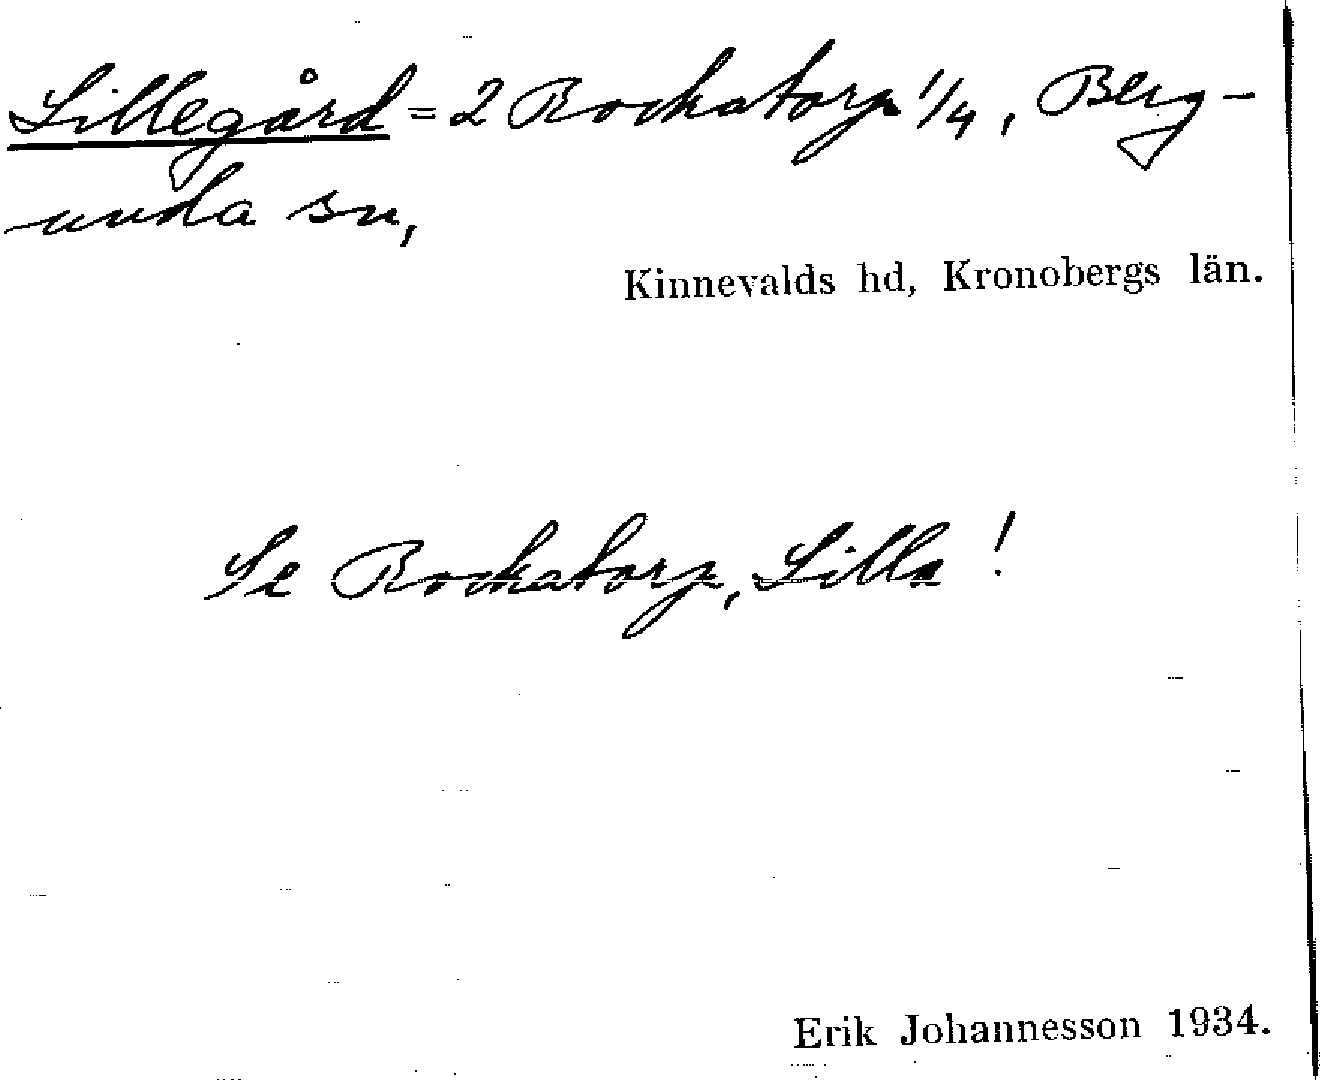 Lillegård = 2 Rockatorp 1/4, Berg-
unda sn,
Kinnevalds hd, Kronobergs län.
Se Rockatorp, Lilla!
Erik Johannesson 1934.